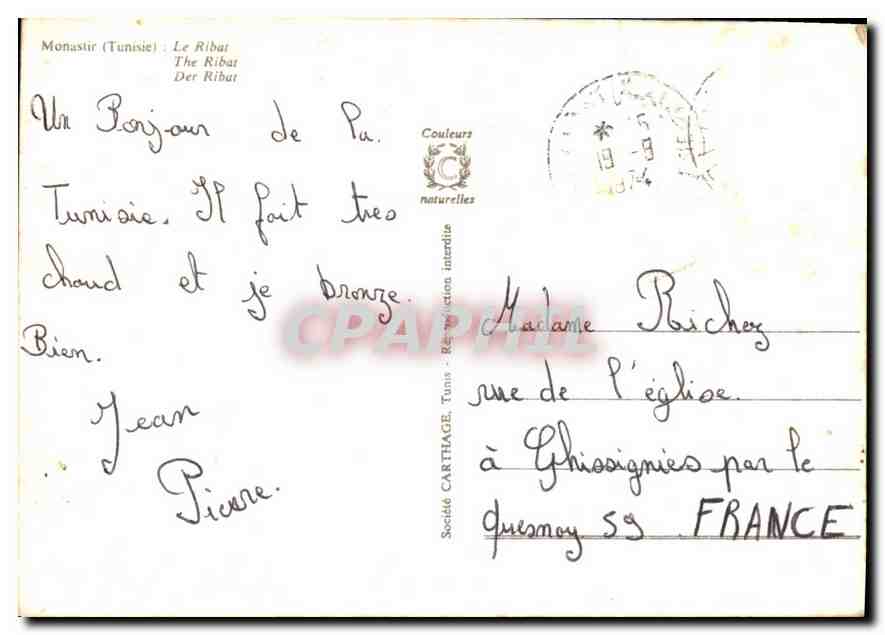 Monastir (Tunisie) : Le Ribat
The Ribat
Der Ribat
Un Bonjour de la
Tunisie. Il fait tres
chaud et je bronze.
Bien.
Jean
Pierre.
Couleurs
C
naturelles
Société CARTHAGE, Tunis - Reproduction interdite
* 5
19 -9
1974
Madame Richez
rue de l'église.
à Ghissignies par le
Quesnoy 59 FRANCE
CPAPHIL